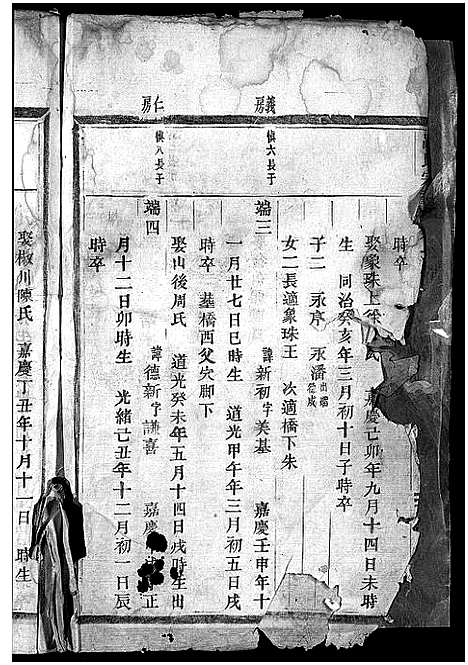 時卒
娶象珠上 氏 嘉慶己卯年九月十四日未時
生 同治癸亥年三月初十日子時卒
子二 永亨 永潘出繼
女二長適象珠王 次適橋下朱
義房
慎六長子
端三 諱新初字美基 嘉慶壬申年十
一月廿七日巳時生 道光甲午年三月初五日戌
時卒 墓橋西父穴脚下
娶山後周氏 道光癸未年五月十四日戌時生出
仁房
慎八長子
端四 諱德新字謙喜 嘉慶 正
月十二日卯時生 光緒己丑年十二月初一日辰
時卒
娶椒川陳氏 嘉慶丁丑年十月十一日 時生